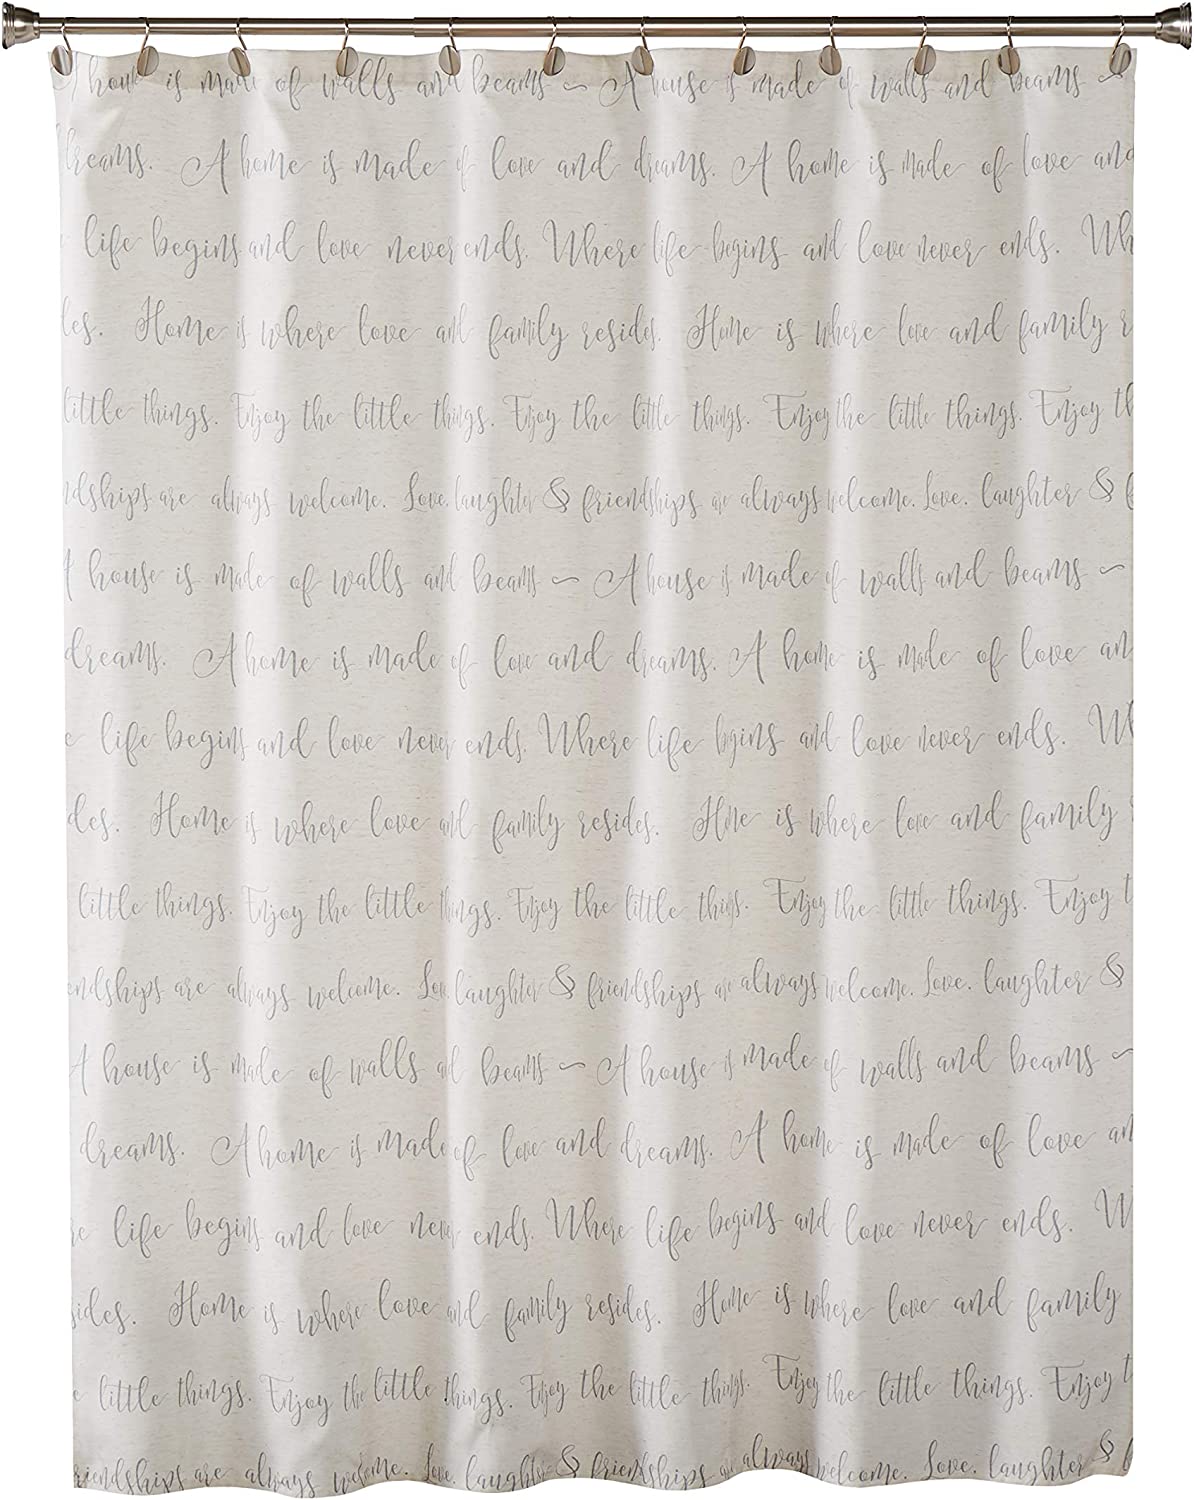 A house is made of walls and beams ~ A house is made of walls and beams ~
dreams. A home is made of love and dreams. A home is made of love and
life begins and love never ends. Where life begins and love never ends. Wh
les. Home is where love and family resides. Home is where love and family r
little things. Enjoy the little things. Enjoy the little things. Enjoy the little things. Enjoy th
ndships are always welcome. Love, laughter & friendships are always welcome. Love, laughter & f
A house is made of walls and beams ~ A house is made of walls and beams ~
dreams. A home is made of love and dreams. A home is made of love an
e life begins and love never ends. Where life begins and love never ends. Wh
des. Home is where love and family resides. Home is where love and family r
little things. Enjoy the little things. Enjoy the little things. Enjoy the little things. Enjoy t
endships are always welcome. Love, laughter & friendships are always welcome. Love, laughter &
A house is made of walls and beams ~ A house is made of walls and beams ~
dreams. A home is made of love and dreams. A home is made of love an
re life begins and love never ends. Where life begins and love never ends. W
sides. Home is where love and family resides. Home is where love and family
e little things. Enjoy the little things. Enjoy the little things. Enjoy the little things. Enjoy t
riendships are always welcome. Love, laughter & friendships are always welcome. Love, laughter & f